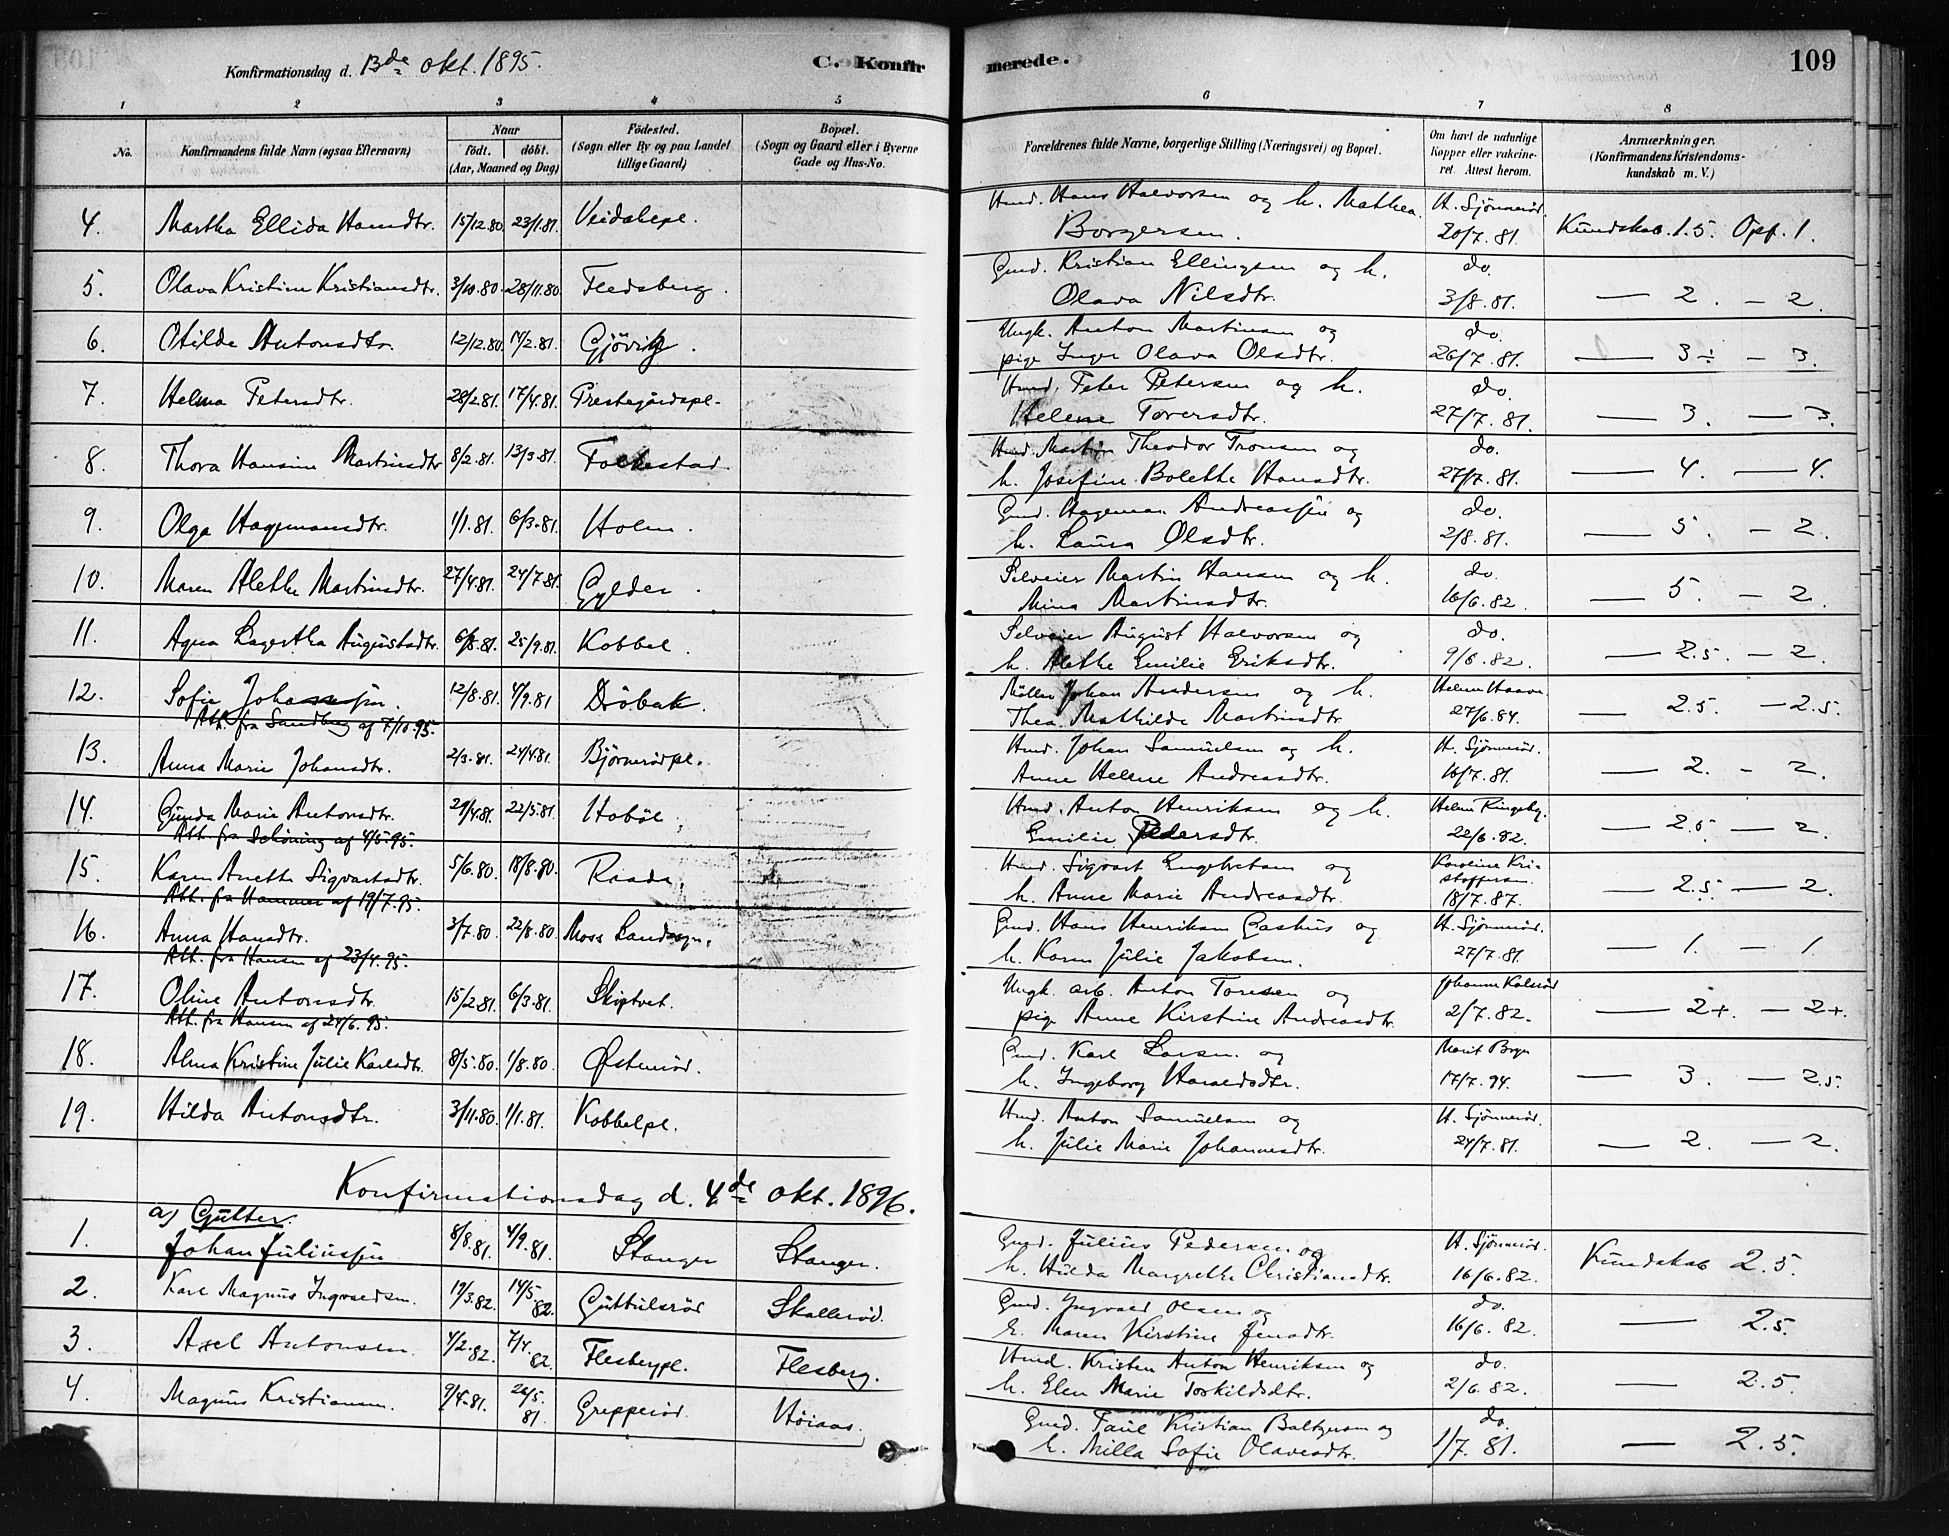 Konfirmationsdag d. 13de okt. 1895. C. Konfir merede. 109
1 2 3 4 5 6 7 8
No. Konfirmandens fulde Navn (ogsaa Efternavn) Naar født. døbt. (Aar, Maaned og Dag) Fødested. (Sogn eller By og paa Landet tillige Gaard) Bopæl. (Sogn og Gaard eller i Byerne Gade og Hus-No. Forældrenes fulde Navne, borgerlige Stilling (Næringsvei) og Bopæl. Om havt de naturlige Kopper eller vakcineret. Attest herom. Anmærkninger. (Konfirmandens Kristendomskundskab m. V.)
4. Martha Ellida Hansdtr. 15/12.80 23/1.81. Hmd. Hans Halvorsen og h. Mathea H. Sjønnerød.
Borgersen. 20/7.81. Kundskab. 1.5. Opf. 1.
5. Olava Kristine Kristiansdtr. 3/10.80. 28/11.80. Flesberg. Gmd. Kristian Ellingsen og h. do.
Olava Nilsdtr. 3/8.81. — 2. — 2.
6. Otilde Antonsdtr. 12/12.80. 17/2.81. Gjövig. Ungk. Anton Martinsen og do.
pige Inger Olava Olsdtr. 26/7.81. — 3÷ — 3.
7. Helma Petersdtr. 28/2.81. 17/4.81. Prestegårdspl. Hmd. Peter Petersen og h. do.
Helene Toversdtr. 27/7.81. — 3. — 3.
8. Thora Hansine Martinsdtr 8/2.81. 13/3.81. Folkestad. Hmd. Martin Theodor Tronsen og do.
h. Josefine Bolette Hansdtr. 27/7.81. — 4. — 4.
9. Olga Hagemansdtr. 1/1.81. 6/3.81. Holm. Gmd. Hageman Andreassen og do.
h. Laura Olsdtr. 2/8.81. — 5. — 2.
10. Maren Alethe Martinsdtr. 27/4.81. 24/7.81. Gylder. Selveier Martin Hansen og h. do.
Mina Martinsdtr. 16/6.82. — 5. — 2.
11. Agna Lagertha Augustsdtr. 6/8.81. 25/9.81. Kobbel. Selveier August Halvorsen og do.
h. Alethe Emilie Eriksdtr. 9/6.82. — 2.5. — 2.
12. Sofie Johansen. 12/8.81. 4/9.81 Dröbak. Möller Johan Andersen og h. Helene Haave
Att. fra Sandberg af 7/10.95. Thea Mathilde Martinsdtr 27/6.84. — 2.5. — 2.5.
13. Anna Marie Johansdtr. 2/3.81. 24/4.81. Bjørnerødpl. Hmd. Johan Samuelsen og h. H. Sjønnerød.
Anne Helene Andreasdtr. 16/7.81. — 2. — 2.
14. Gunda Marie Antonsdtr. 29/4.81. 22/5.81. Hobøl. Hmd. Anton Henriksen og h. Helene Ringsby.
Att. fra Schöning af 4/5.95. Emilie Pedersdtr. 22/6.82. — 2.5 — 2.
15. Karen Anette Sigvartsdtr. 5/6.80. 18/8.80. Raade. Hmd. Sigvart Engebretsen og Karoline Kristoffersen
Att. fra Hammer af 19/7.95. h. Anne Marie Andreasdtr. 18/7.87. — 2.5 — 2.
16. Anna Hansdtr. 3/7.80 22/8.80 Moss Landsogn. Gmd. Hans Henriksen Cashus og H. Sjønnerød.
Att. fra Hansen af 23/4.95. h. Karen Julie Jakobsen. 27/7.81. — 1. — 1.
17. Oline Antonsdtr. 15/2.81. 6/3.81. Skiptvet. Ungk. arb. Anton Toresen og Johanne Kolsrød
Att. fra Hansen af 24/6.95. pige Anne Kirstine Andreasdtr. 2/7.82. — 2+. — 2+.
18. Alma Kristine Julie Karlsdtr. 8/5.80. 1/8.80. Østenrød. Gmd. Karl Larsen og Marit Bryn
h. Ingeborg Haraldsdtr. 17/7.94. — 3. — 2.5.
19. Hilda Antonsdtr. 3/11.80. 1/1.81. Kobbelpl. Hmd. Anton Samuelsen og H. Sjønnerød.
h. Julie Marie Johannesdtr. 24/7.81. — 2. — 2.
Konfirmationsdag d. 4de okt. 1896.
a) Gutter.
1. Johan Juliussen 8/8.81. 4/9.81. Stanger Stanger. Gmd. Julius Pedersen og H. Sjønnerød.
h. Hulda Margrethe Christiansdtr. 16/6.82. Kundskab 2.5.
2. Karl Magnus Ingvaldsen. 19/3.82. 14/5.82. Guttulsrød Skallerød. Gmd. Ingvald Olsen og do.
h. Maren Kirstine Jensdtr. 16/6.82. — 2.5.
3. Axel Antonsen. 4/2.82. 7/4.82. Flesbergpl. Flesberg. Hmd. Kristen Anton Henriksen og do.
h. Elen Marie Torkildsdtr. 2/6.82. — 2.5.
4. Magnus Kristiansen. 9/4.81. 26/5.81. Grepperød. Höiaas. Gmd. Paul Kristian Baltzersen og do.
h. Milla Sofie Olavesdtr. 1/7.81. — 2.5.